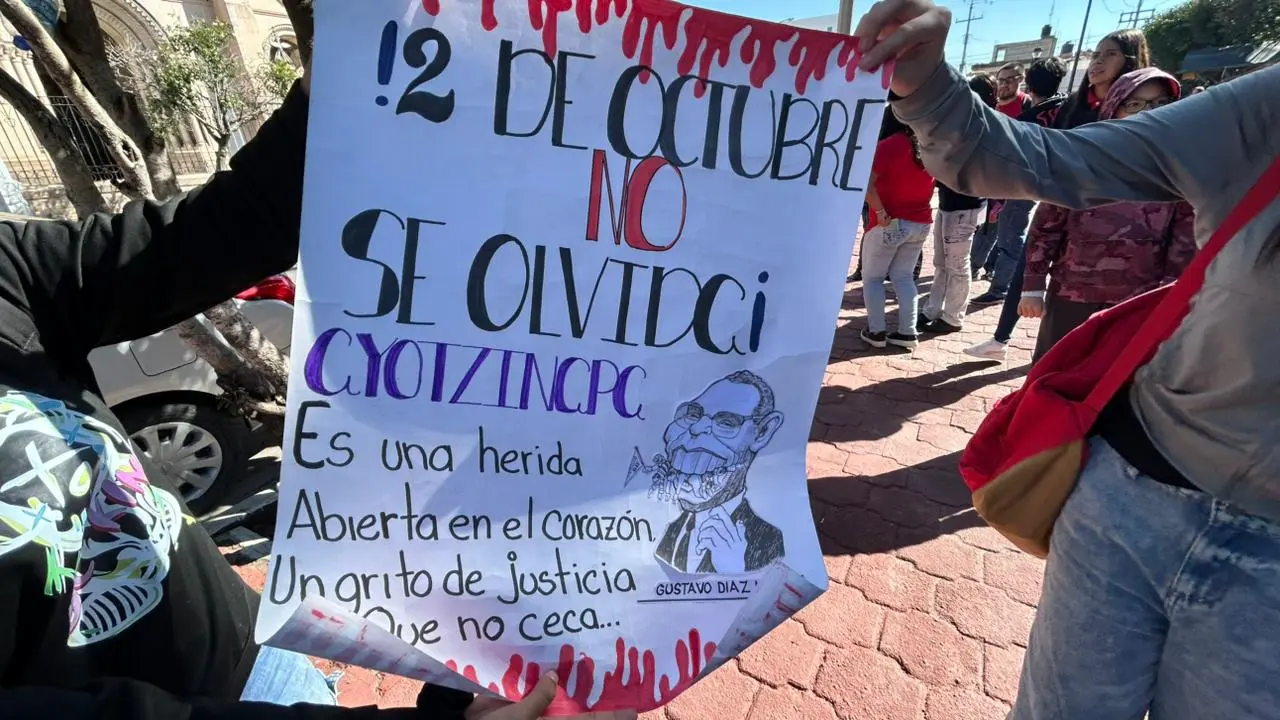 ¡2 DE OCTUBRE
NO
SE OLVIDA¡
AYOTZINAPA
Es una herida
Abierta en el corazón,
Un grito de justicia
Que no ceca...
GUSTAVO DIAZ